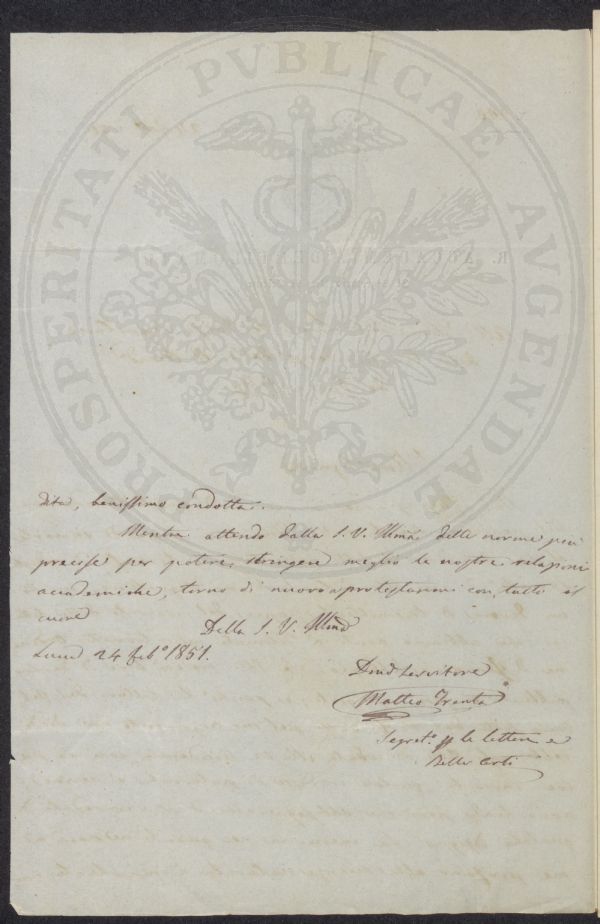 PROSPERITATI PVBLICAE AVGENDAE
dità, benissimo condotta.
Mentre attendo dalla S. V. Illma delle norme più
precise per potere stringere meglio le nostre relazioni
accademiche, torno di nuovo a protestarmi con tutto il
cuore
Della S. V. Illma
Lucca 24 febo 1851.
Devd servitore
Matteo Trenta
Segret. per le lettere e
Belle Arti